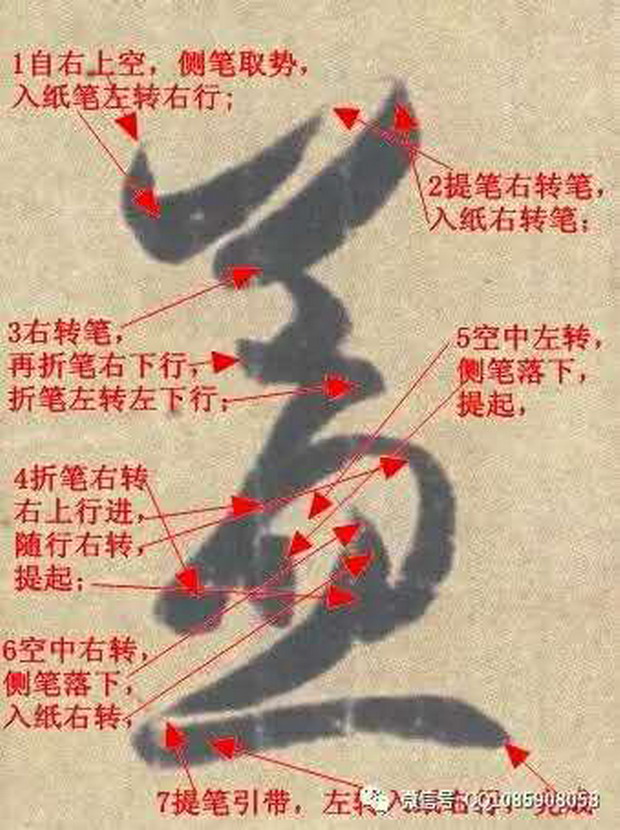 1自右上空，侧笔取势，
入纸笔左转右行;
2提笔右转笔，
入纸右转笔;
3右转笔，
再折笔右下行，
折笔左转左下行;
5空中左转，
侧笔落下，
提起，
4折笔右转
右上行进，
随行右转，
提起;
6空中右转，
侧笔落下，
入纸右转，
7提笔引带，左转入纸右行，完成